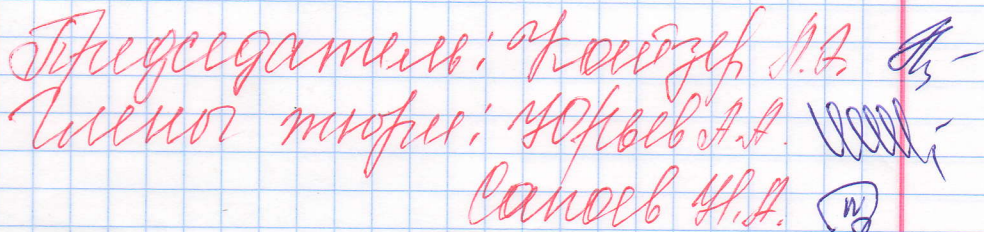 Председатель: Кайзер А.А.
Члены жюри: Юрьев А.А.
Сапоев Н.А.